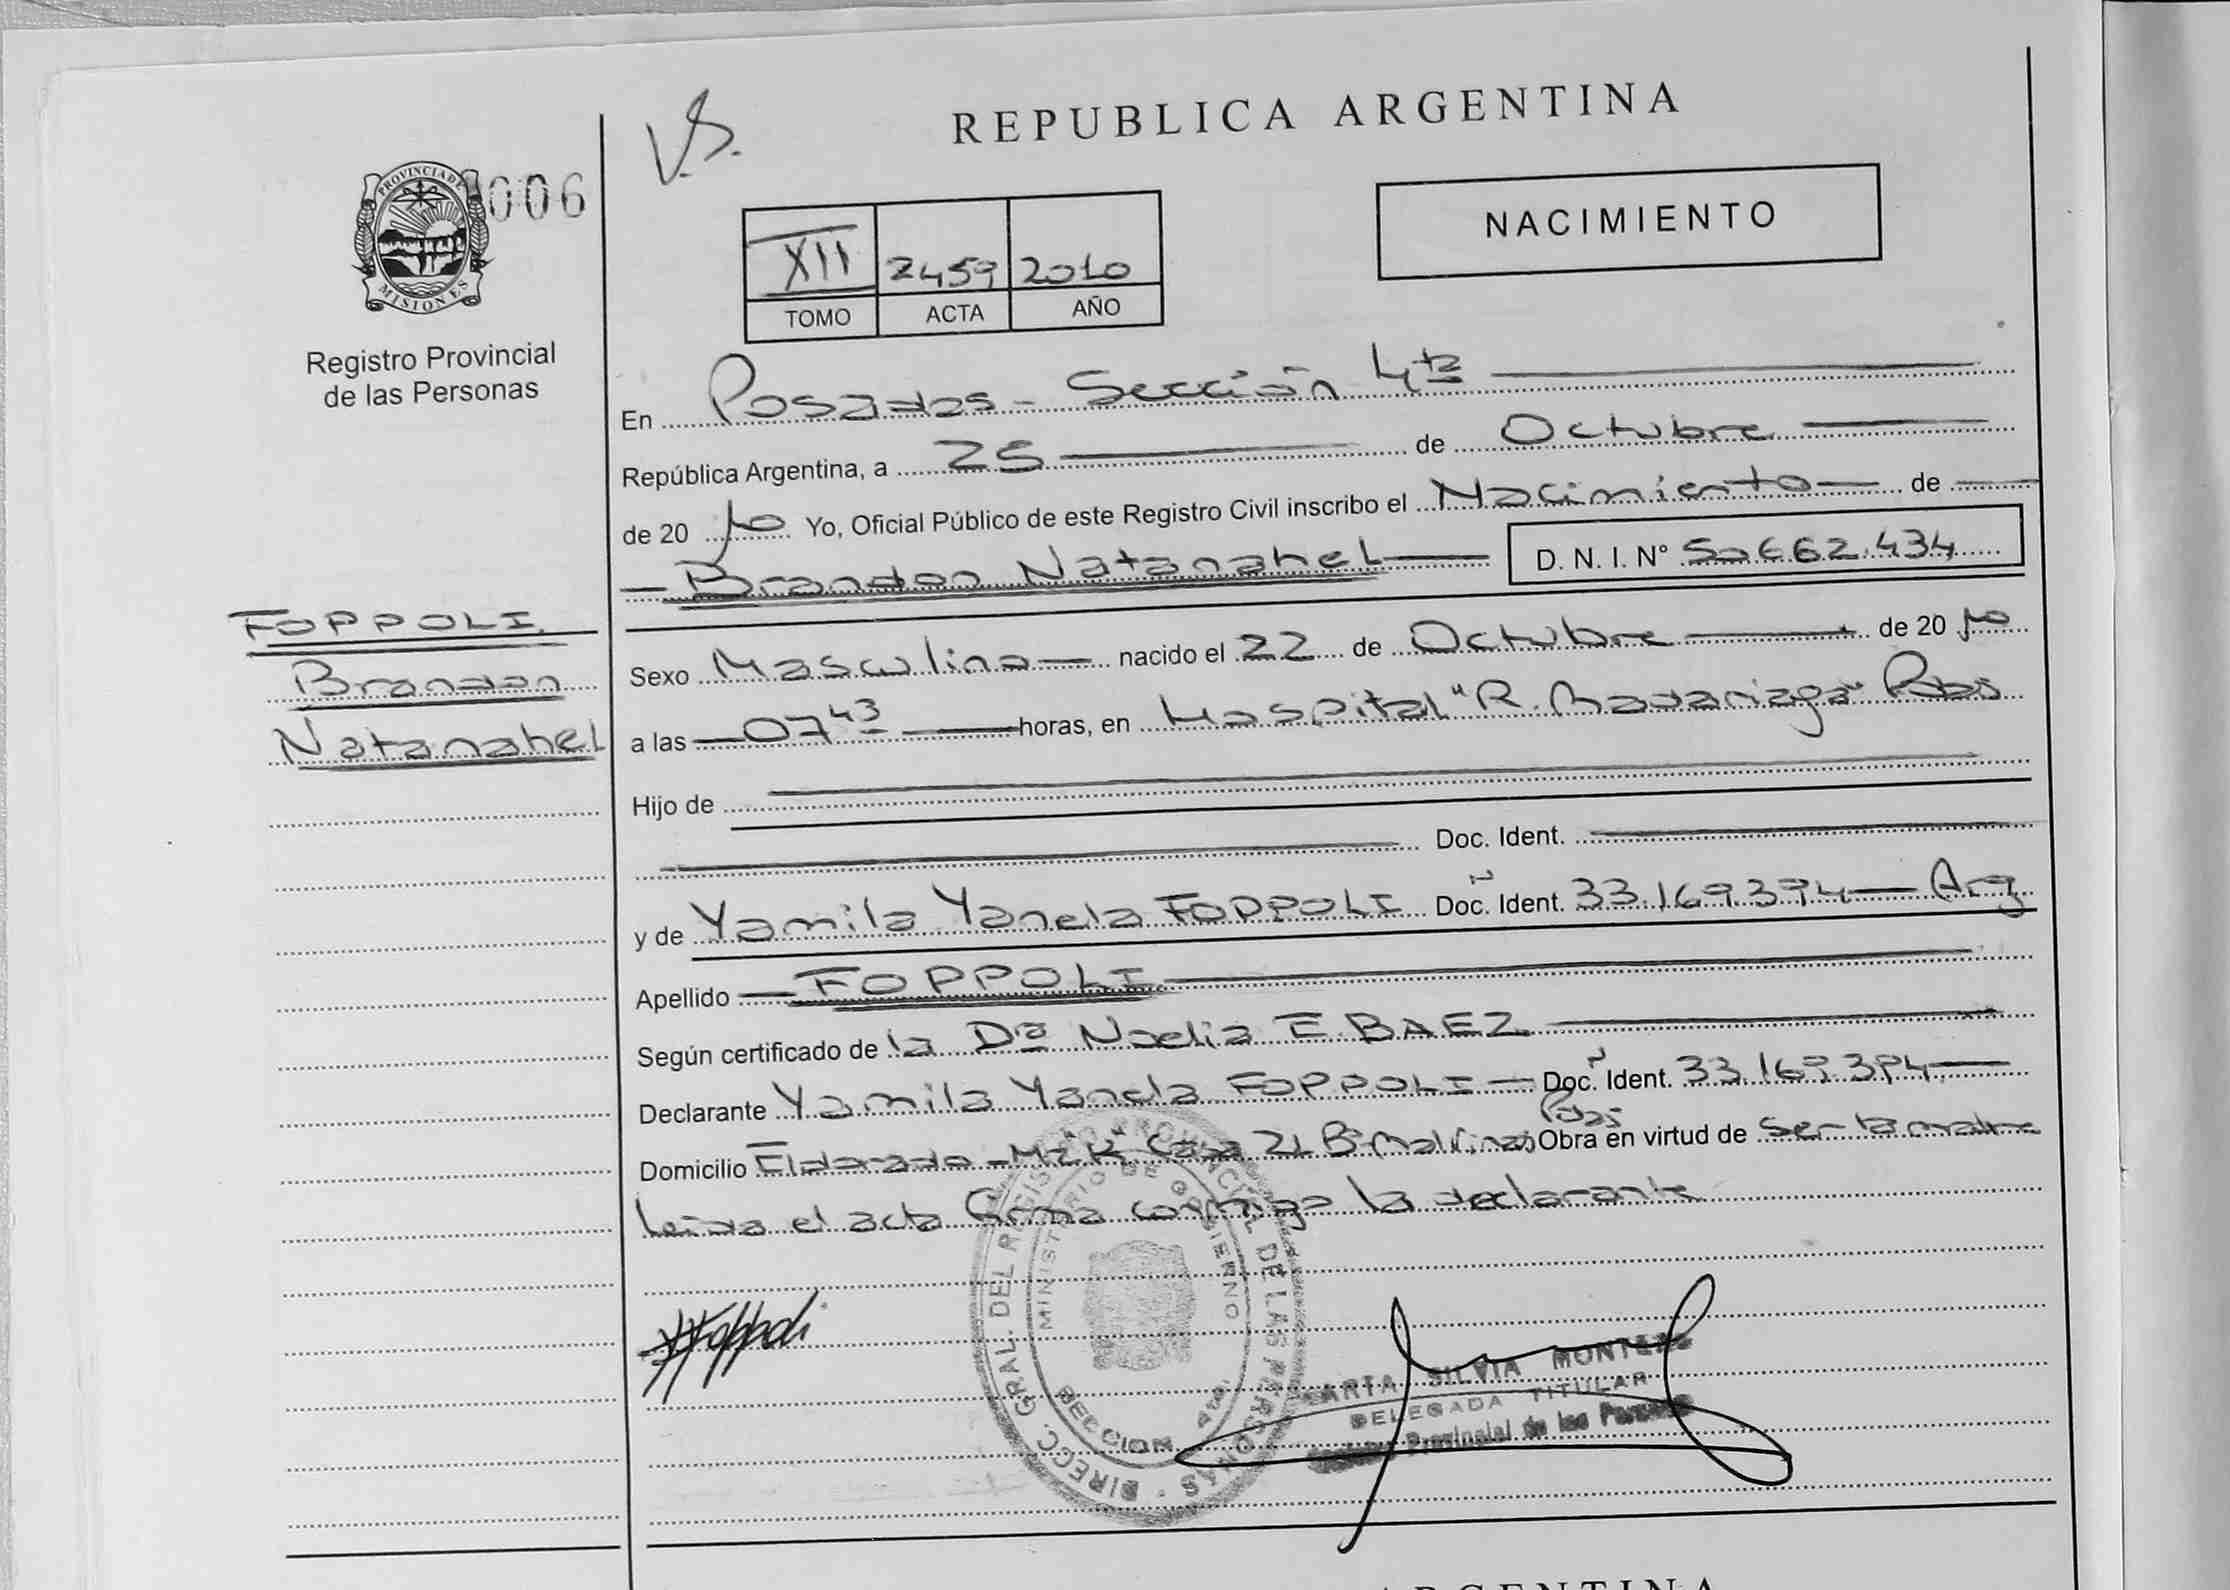 REPUBLICA ARGENTINA
V.S.
PROVINCIA DE
MISIONES
006
Registro Provincial
de las Personas
NACIMIENTO
XII 2459 2010
TOMO ACTA AÑO
En Posadas - Sección 4ta
República Argentina, a 25 de Octubre
de 20 10 Yo, Oficial Público de este Registro Civil inscribo el Nacimiento de
Brandon Natanahel D. N. I. N° 50.662.434
FOPPOLI
Brandon
Natanahel
Sexo Masculino nacido el 22 de Octubre de 20 10
a las 07 43 horas, en Hospital "R. Madariaga" Pdas
Hijo de
Doc. Ident.
y de Yamila Yanela FOPPOLI Doc. Ident. 33.169.394 Arg
Apellido FOPPOLI
Según certificado de la Dra Noelia E. BAEZ
Declarante Yamila Yanela FOPPOLI Doc. Ident. 33.169.394
Domicilio Eldorado - Mz "K" Casa 21 Bº Malvinas Pdas Obra en virtud de ser la madre
Leída el acta firma conmigo la declarante
YFoppoli
DIRECC. GRAL. DEL REGISTRO PROVINCIAL DE LAS PERSONAS
MINISTERIO DE GOBIERNO
SECCION 4ta.
SILVIA
DELEGADA TITULAR
Provincial de las Personas
ARGENTINA